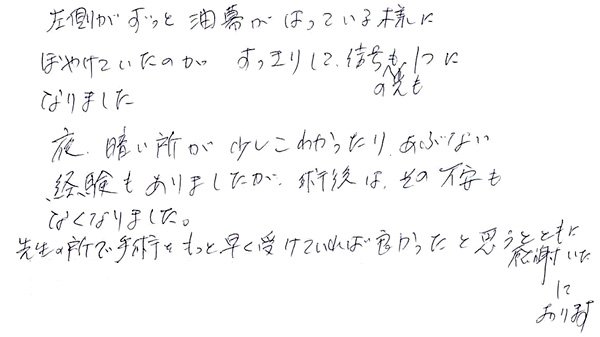 左側がずっと油幕がはっている様に
ぼやけていたのが すっきりして、信号も1つに
の光も
なりました
夜、暗い所が少しこわかったり、あぶない
経験もありましたが、術後は、その不安も
なくなりました。
先生の所で手術をもっと早く受けていれば良かったと思うとともに
感謝いた
に
おります